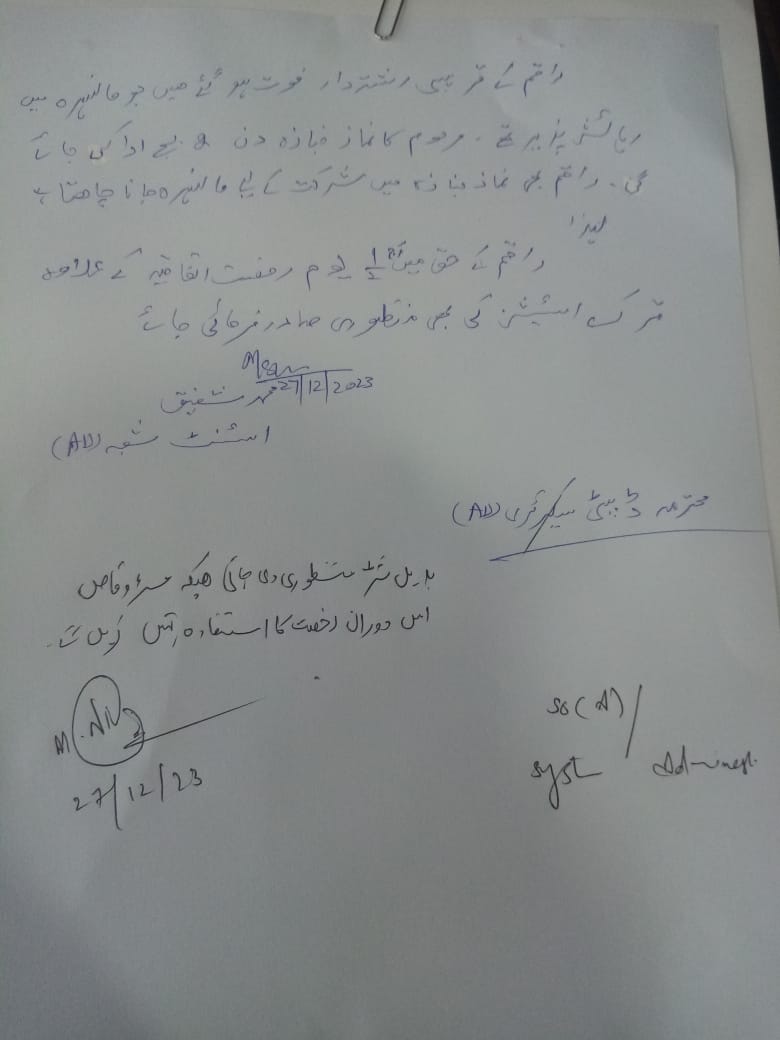 راقم کے قریبی رشتہ دار فوت ہو گئے ہیں جو مانسہرہ میں
رہائش پزیر تھے۔ مرحوم کا نماز جنازہ دن 2 بجے ادا کی جائے
گی۔ راقم بھی نماز جنازہ میں شرکت کے لیے مانسہرہ جانا چاہتا ہے
لہذا
راقم کے حق میں 1/2 یوم رخصت اتفاقیہ کے علاوہ
ترک اسٹیشن کی بھی منظوری صادر فرمائی جائے
27/12/2023
محمد شفیق
اسٹنٹ شعبہ (AD)
محترمہ ڈپٹی سیکرٹری (AD)
منظوری دی جاتی ہیکہ
اس دوران رخصت کا استفادہ نہیں کریں گے۔
27/12/23
SO(A)